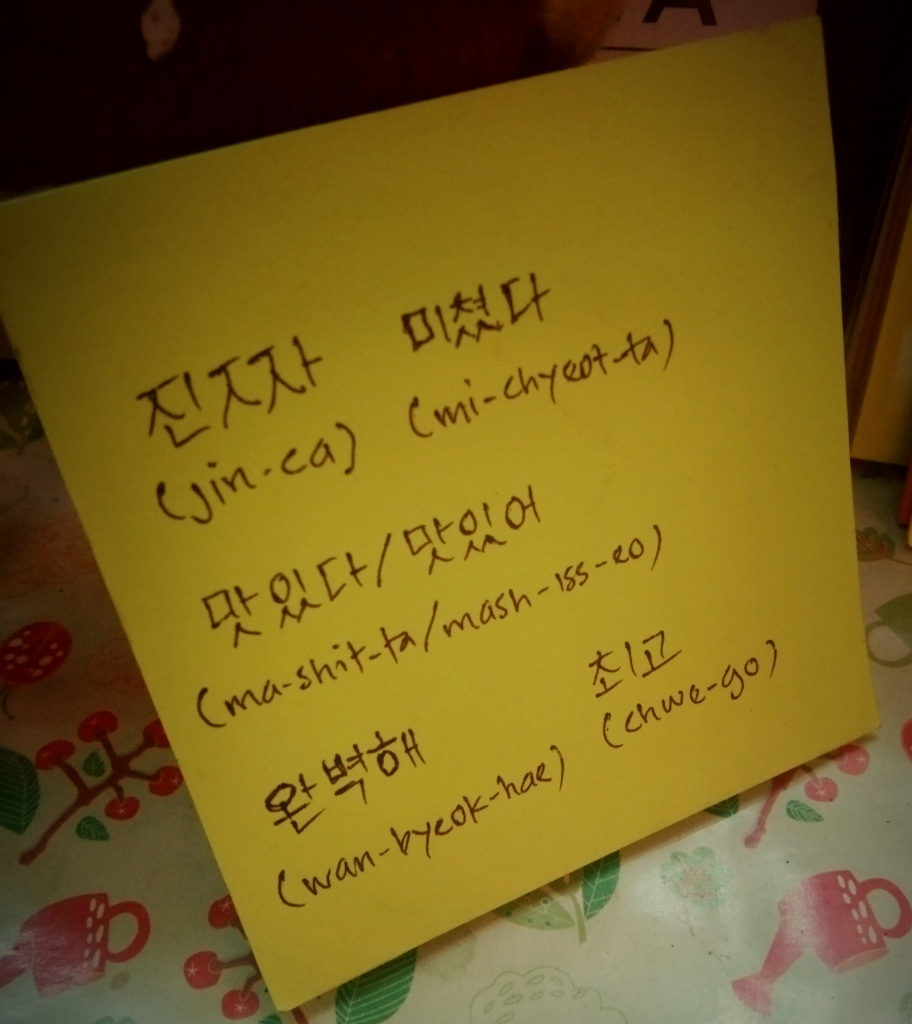 A
진짜 미쳤다
(jin-ca) (mi-chyeot-ta)
맛있다/맛있어
(ma-shit-ta/mash-iss-eo)
완벽해 최고
(wan-byeok-hae) (chwe-go)